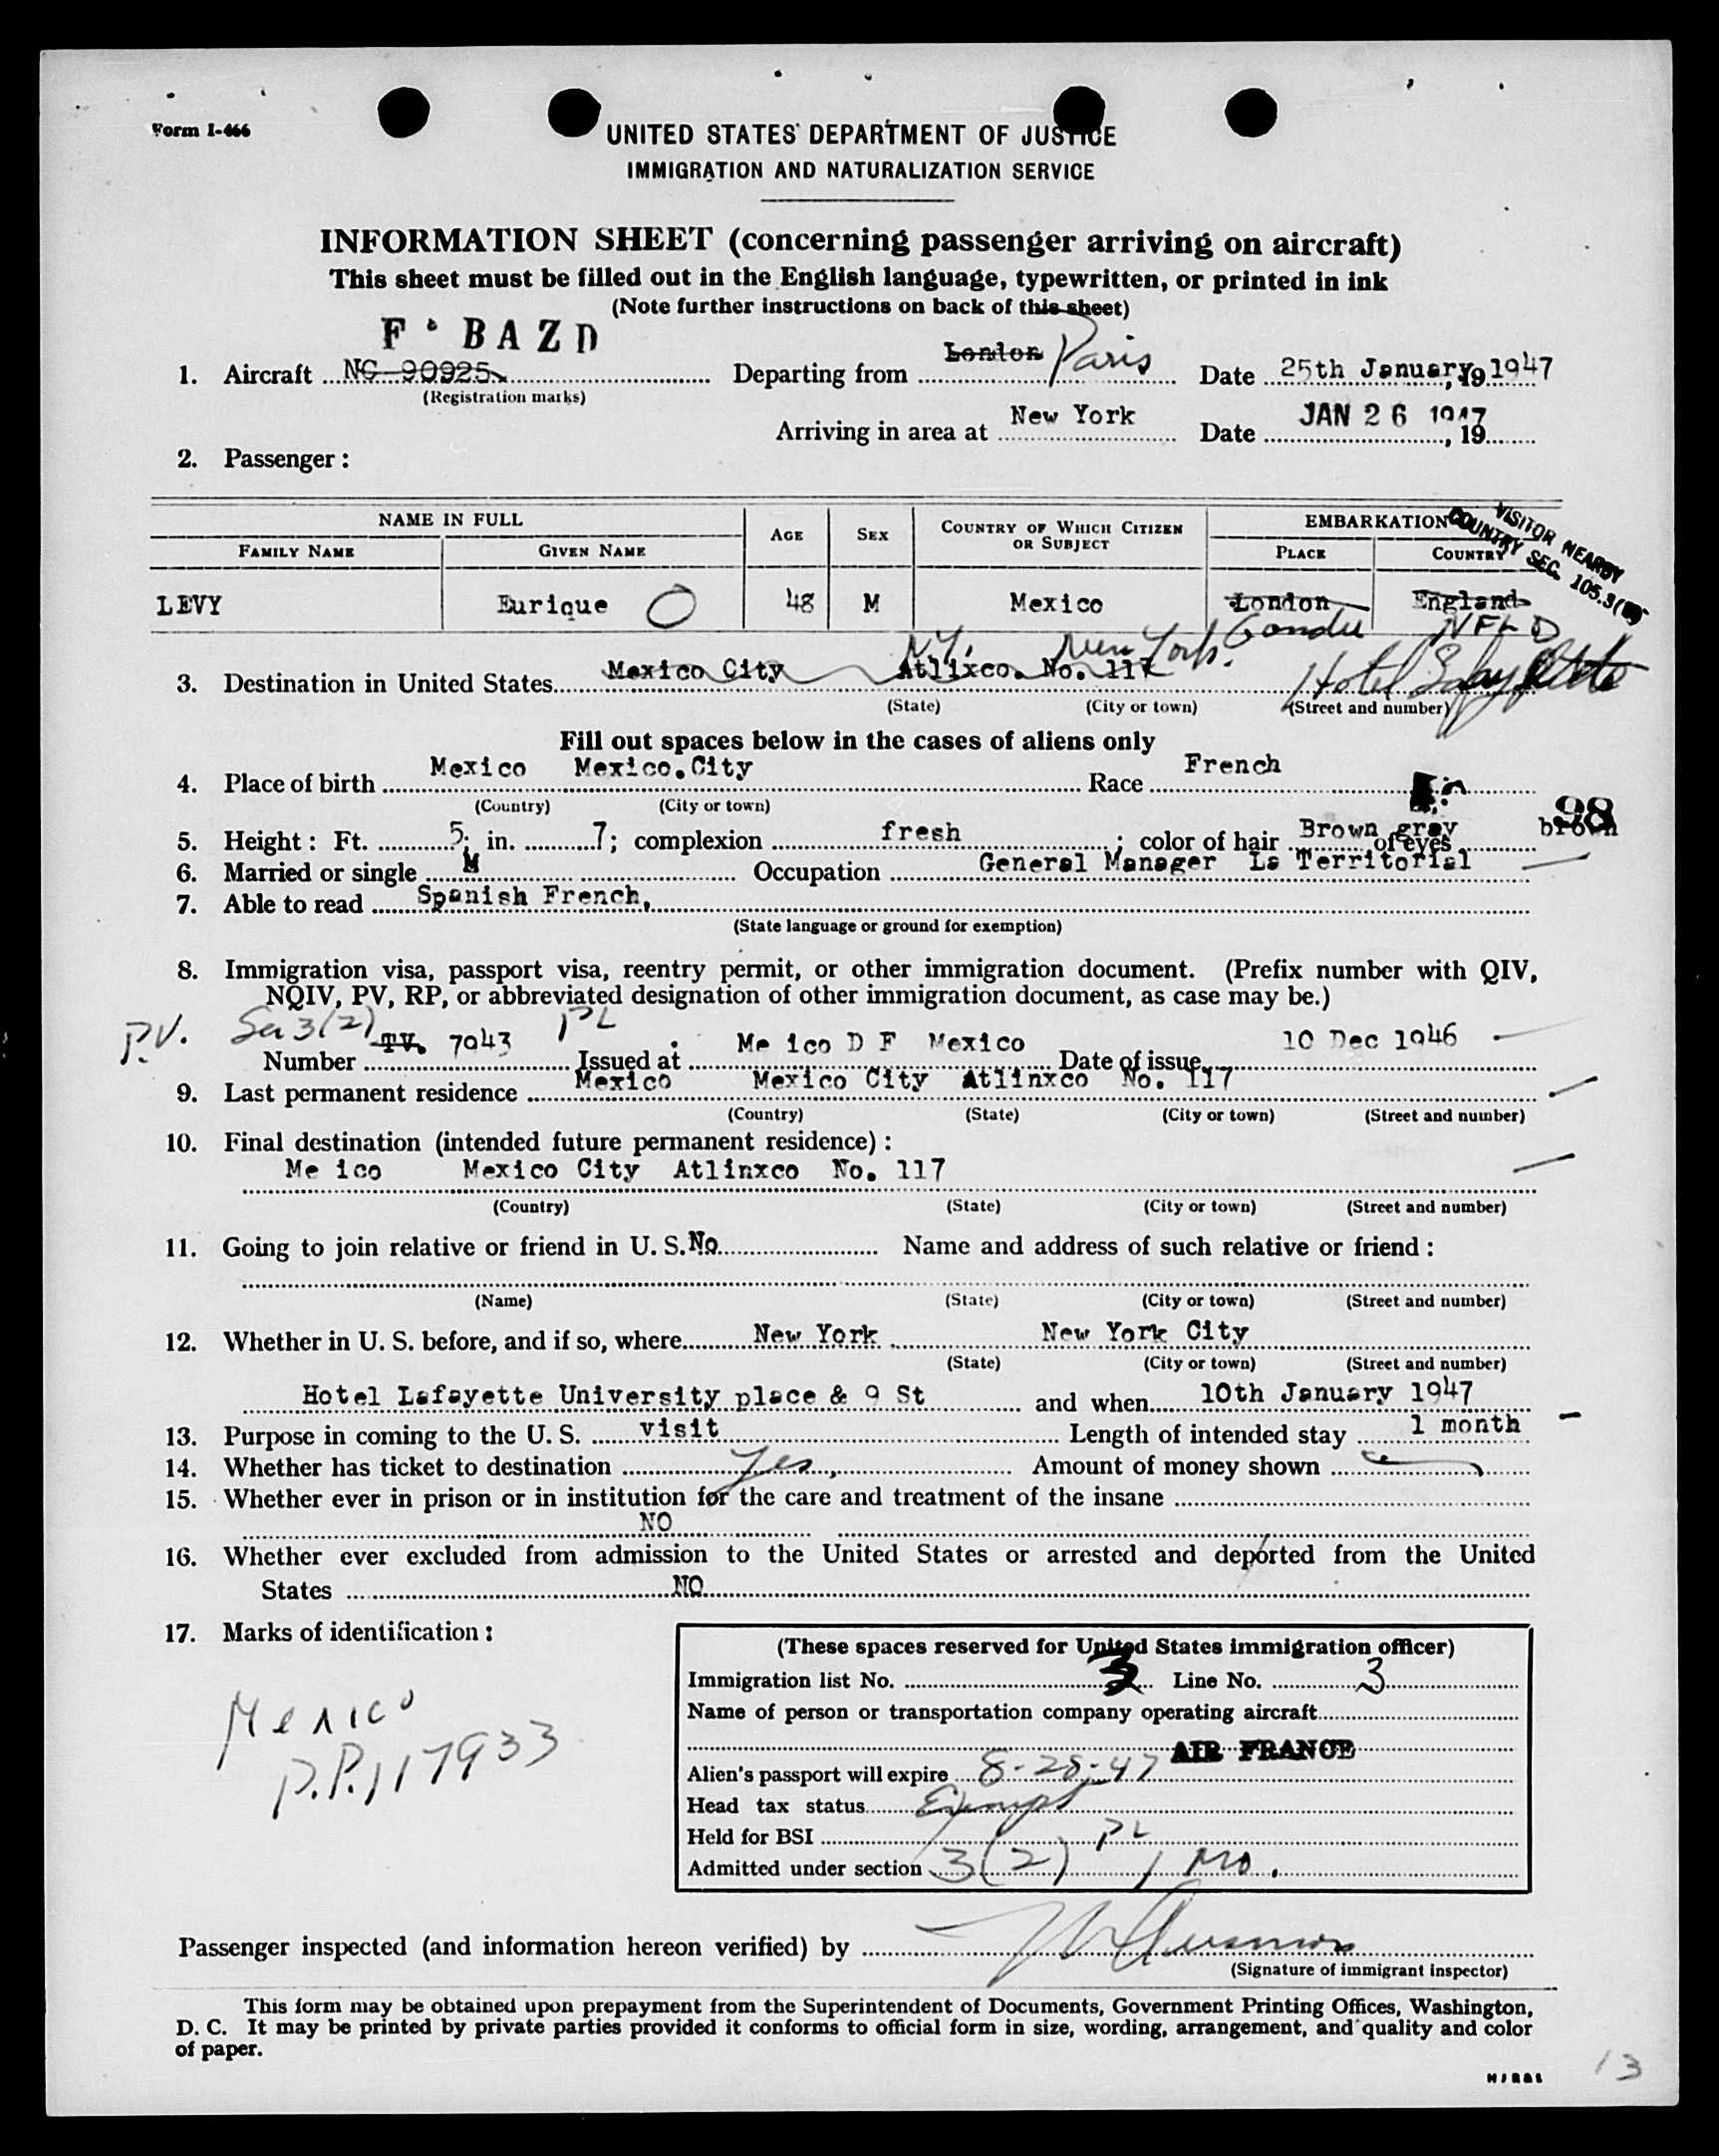 Form I-466
UNITED STATES DEPARTMENT OF JUSTICE
IMMIGRATION AND NATURALIZATION SERVICE
INFORMATION SHEET (concerning passenger arriving on aircraft)
This sheet must be filled out in the English language, typewritten, or printed in ink
(Note further instructions on back of this sheet)
F BAZD
1. Aircraft NC 90925 Departing from London Paris Date 25th January, 19 1947
(Registration marks)
Arriving in area at New York Date JAN 26 1947, 19
2. Passenger:
NAME IN FULL AGE SEX COUNTRY OF WHICH CITIZEN OR SUBJECT EMBARKATION
FAMILY NAME GIVEN NAME PLACE COUNTRY
VISITOR NEARBY
COUNTRY SEC. 105.3
LEVY Eurique O 48 M Mexico London England
Gander NFLD
N.Y. New York. Hotel Lafayette
3. Destination in United States Mexico City Atlixco. No. 117
(State) (City or town) (Street and number)
Fill out spaces below in the cases of aliens only
4. Place of birth Mexico Mexico.City Race French
(Country) (City or town)
98
5. Height: Ft. 5; in. 7; complexion fresh; color of hair Brown grey of eyes brown
6. Married or single M Occupation General Manager La Territorial
7. Able to read Spanish French,
(State language or ground for exemption)
8. Immigration visa, passport visa, reentry permit, or other immigration document. (Prefix number with QIV,
NQIV, PV, RP, or abbreviated designation of other immigration document, as case may be.)
P.V. Sec 3(2) PL
Number TV. 7943 Issued at Me ico D F Mexico Date of issue 10 Dec 1946
9. Last permanent residence Mexico Mexico City Atlinxco No. 117
(Country) (State) (City or town) (Street and number)
10. Final destination (intended future permanent residence):
Me ico Mexico City Atlinxco No. 117
(Country) (State) (City or town) (Street and number)
11. Going to join relative or friend in U. S. No Name and address of such relative or friend:
(Name) (State) (City or town) (Street and number)
12. Whether in U. S. before, and if so, where New York New York City
(State) (City or town) (Street and number)
Hotel Lafayette University place & 9 St and when 10th January 1947
13. Purpose in coming to the U. S. visit Length of intended stay 1 month
14. Whether has ticket to destination Yes Amount of money shown
15. Whether ever in prison or in institution for the care and treatment of the insane
NO
16. Whether ever excluded from admission to the United States or arrested and deported from the United
States NO
17. Marks of identification:
Mexico
P.P. 117933
(These spaces reserved for United States immigration officer)
Immigration list No. 3 Line No. 3
Name of person or transportation company operating aircraft
AIR FRANCE
Alien's passport will expire 8-28-47
Head tax status Exempt
Held for BSI PL
Admitted under section 3(2) 1 Mo.
Passenger inspected (and information hereon verified) by
(Signature of immigrant inspector)
This form may be obtained upon prepayment from the Superintendent of Documents, Government Printing Offices, Washington,
D. C. It may be printed by private parties provided it conforms to official form in size, wording, arrangement, and quality and color
of paper.
13